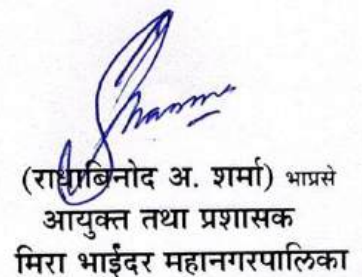 Sharma
(राधाबिनोद अ. शर्मा) भाप्रसे
आयुक्त तथा प्रशासक
मिरा भाईंदर महानगरपालिका